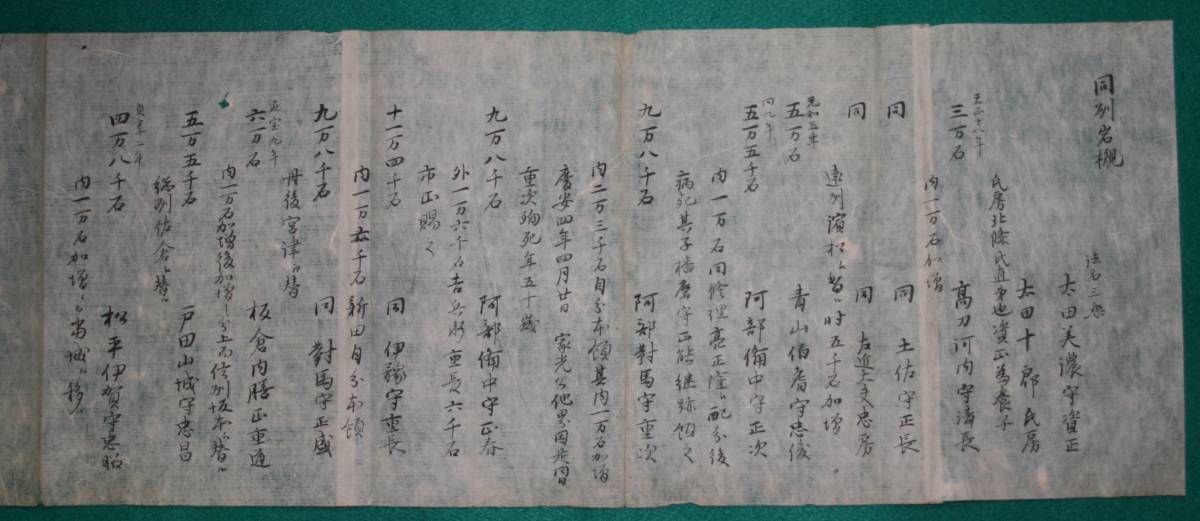 同州岩槻
法名三楽
太田美濃守資正
太田十郎氏房
氏房北條氏直弟也資正為養子
天正十八年
三万石 高力河内守清長
内一万石加増
同 同 土佐守正長
同 同 左近大夫忠房
遠州濱松ゟ替 時五千石加増
元和五年
五万石 青山伯耆守忠俊
同九年
五万五千石 阿部備中守正次
内一万石同修理亮正澄配分後
病死其子播磨守正能継跡領之
九万八千石 阿部對馬守重次
内二万三千石自分本領其内一万石加増
慶安四年四月廿日 家光公他界因茲同日
重次殉死年五十歳
九万八千石 阿部備中守正春
外一万六千石 重長六千石
市正賜之
十一万四千石 同 伊豫守重長
内一万六千石新田自分本領
九万八千石 同 對馬守正盛
丹後宮津ゟ替
延宝九年
六万石 板倉内膳正重通
内一万石加増後加増 分上而信州坂本ゟ替
五万五千石 戸田山城守忠昌
総州佐倉ゟ替
貞享一年
四万八千石 松平伊賀守忠昭
内一万石加増 当城ゟ移